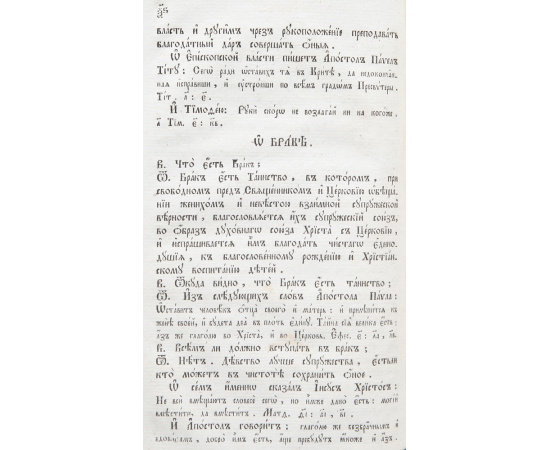 власть и҆ други́мъ чрезъ рꙋкоположе́нїе преподава́ть
благода́тный да́ръ соверша́ть ѻ҆́ныѧ.
Ѡ҆ Є҆пи́скопской вла́сти пи́шетъ А҆по́столъ Па́ѵелъ
Ті́тꙋ: Сегѡ̀ ра́ди ѡ҆ста́вихъ тѧ̀ въ Кри́тѣ, да недоконча̑н-
наѧ и҆спра́виши, и҆ ᲂу҆стро́иши по всѣ̑мъ градѡ́мъ Пресвѵ́теры.
Тіт. а҃: є҃.
И҆ Тїмоѳе́ю: Рꙋкѝ ско́рѡ не возлага́й ни на кого́же.
а҃ Тім. є҃: к҃в.
Ѡ҆ БРА́КѢ.
В. Что̀ є҆́сть Бра́къ;
Ѿ. Бра́къ є҆́сть Та́инство, въ кото́ромъ, при
свобо́дномъ пред̾ Свѧще́нникомъ и҆ Це́рковїю ѡ҆бѣща́-
нїи женихо́мъ и҆ невѣ́стою взаи́мной сꙋпрꙋ́жеской
вѣ́рности, благословлѧ́етсѧ и҆́хъ сꙋпрꙋ́жескїй сою́зъ,
во ѻ҆́бразъ дꙋхо́внагѡ сою́за Хрїста̀ съ Це́рковїю,
и҆ и҆спра́шиваетсѧ и҆̀мъ благода́ть чи́стагѡ є҆динѡ-
дꙋ́шїѧ, къ благослове́нномꙋ рожде́нїю и҆ Хрїстїа́н-
скомꙋ воспита́нїю дѣте́й.
В. Ѿкꙋ́да ви́дно, что̀ Бра́къ є҆́сть та́инство;
Ѿ. И҆з̾ слѣ́дꙋющихъ сло́въ А҆по́стола Па́ѵла:
Ѡ҆ста́витъ человѣ́къ ѻ҆тца̀ своего̀ и҆ ма́терь: и҆ прилѣпи́тсѧ къ
женѣ̀ свое́й, и҆ бꙋ́дета два̀ въ пло́ть є҆ди́нꙋ. Та́йна сїѧ̀ вели́ка є҆́сть:
а҆́зъ же глаго́лю во Хрїста̀, и҆ во Це́рковь. Е҆фес. є҃: л҃а, л҃в.
В. Всѣ̑мъ ли до́лжно вступа́ть въ бра́къ;
Ѿ. Нѣ́тъ. Дѣ́вство лꙋ́чше сꙋпрꙋ́жества, є҆́стьли
кто̀ мо́жетъ въ чистотѣ̀ сохрани́ть ѻ҆́ное.
Ѡ҆ се́мъ и҆́меннѡ сказа́лъ І҆исꙋ́съ Хрїсто́съ:
Не всѝ вмѣща́ютъ словесѐ сегѡ̀, но и҆̀мже дано̀ є҆́сть: могі́й
вмѣсти́ти, да вмѣсти́тъ. Матѳ. ѳ҃і: а҃і, в҃і.
И҆ А҆по́столъ говори́тъ: глаго́лю же безбра̑чнымъ и҆
вдови́цамъ, добро̀ и҆̀мъ є҆́сть, а҆́ще пребꙋ́дꙋтъ ꙗ҆́коже и҆ а҆́зъ.